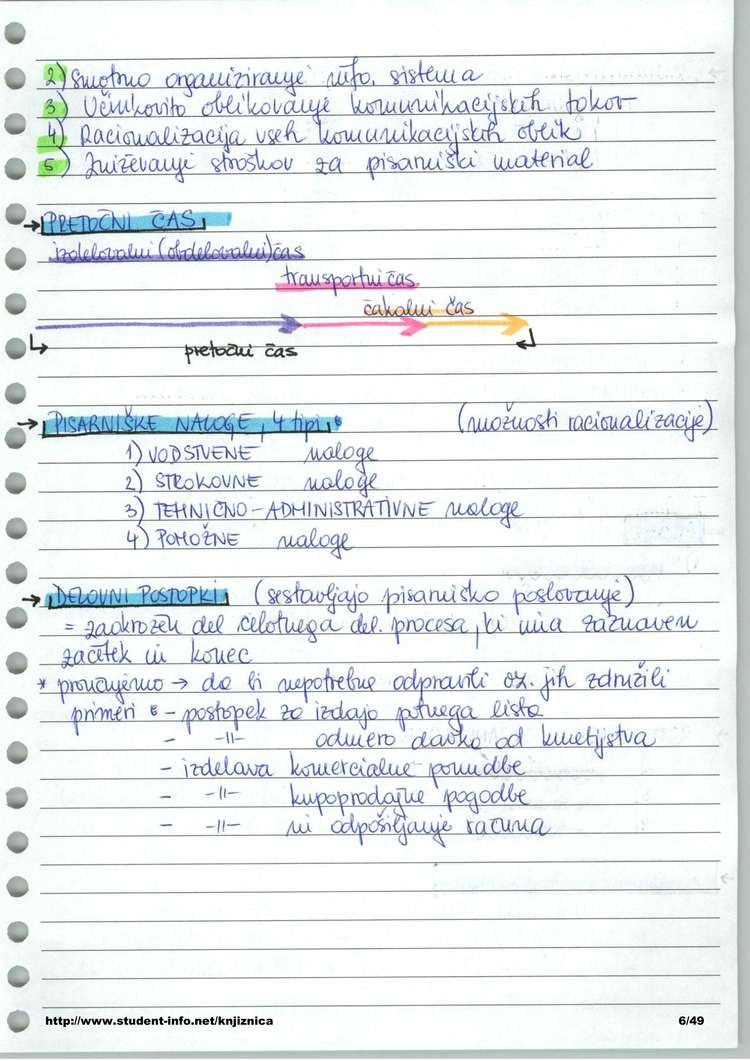 2) Smotrno organiziranje info. sistema
3) Učinkovito oblikovanje komunikacijskih tokov
4) Racionalizacija vseh komunikacijskih oblik
5) Zniževanje stroškov za pisarniški material
→ PRETOČNI ČAS
izdelovalni (obdelovalni) čas
transportni čas
čakalni čas
pretočni čas
→ PISARNIŠKE NALOGE, 4 tipi: (možnosti racionalizacije)
1) VODSTVENE naloge
2) STROKOVNE naloge
3) TEHNIČNO-ADMINISTRATIVNE naloge
4) POMOŽNE naloge
→ DELOVNI POSTOPKI (sestavljajo pisarniško poslovanje)
= zaokrožen del celotnega del. procesa, ki ima zaznaven
začetek in konec
* proučujemo → da bi nepotrebne odpravili oz. jih združili
primeri: - postopek za izdajo potnega lista
- -||- odmero davka od kmetijstva
- izdelava komercialne ponudbe
- -||- kupoprodajne pogodbe
- -||- in odpošiljanje računa
http://www.student-info.net/knjiznica 6/49